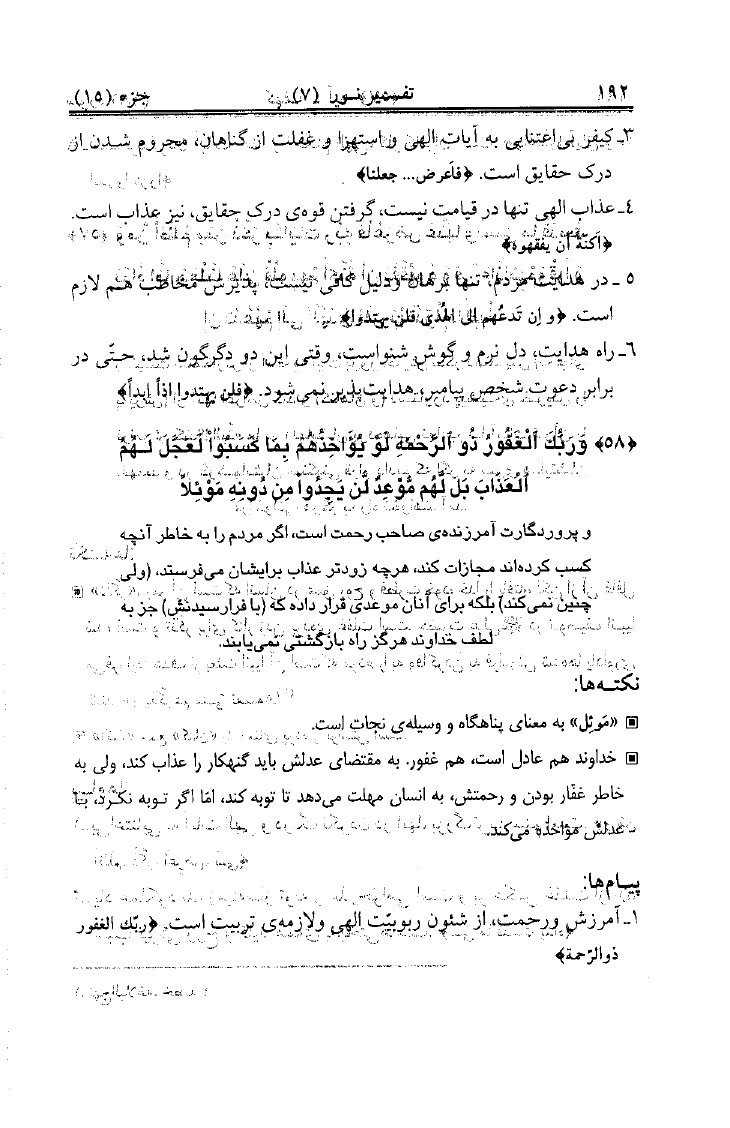 ۱۹۲ تفسیر نور (۷) جزء (۱۵)
۳ـ کیفر بی‌اعتنایی به آیات الهی و استهزا و غفلت از گناهان، محروم شدن از
درک حقایق است. ﴿فاَعرض... جعلنا﴾
٤ـ عذاب الهی تنها در قیامت نیست، گرفتن قوه‌ی درک حقایق، نیز عذاب است.
﴿اَکنّة اَن یفقهوه﴾
۵ ـ در هدایت مردم، تنها برهان و دلیل کافی نیست، پذیرش مخاطب هم لازم
است. ﴿و اِن تَدعُهم الی الهُدی فلن یهتدوا﴾
٦ـ راه هدایت، دل نرم و گوش شنواست، وقتی این دو دگرگون شد، حتّی در
برابر دعوت شخص پیامبر، هدایت‌پذیر نمی‌شود. ﴿فلن یهتدوا اذاً ابداً﴾
﴿۵۸﴾ وَرَبُّكَ ٱلْغَفُورُ ذُو ٱلرَّحْمَةِ لَوْ يُؤَاخِذُهُمْ بِمَا كَسَبُواْ لَعَجَّلَ لَهُمُ
ٱلْعَذَابَ بَل لَّهُم مَّوْعِدٌ لَّن يَجِدُواْ مِن دُونِهِ مَوْئِلاً
و پروردگارت آمرزنده‌ی صاحب رحمت است، اگر مردم را به خاطر آنچه
کسب کرده‌اند مجازات کند، هرچه زودتر عذاب برایشان می‌فرستد، (ولی
چنین نمی‌کند) بلکه برای آنان موعدی قرار داده که (با فرارسیدنش) جز به
لطف خداوند هرگز راه بازگشتی نمی‌یابند.
نکته‌ها:
▣ «مَوئِل» به معنای پناهگاه و وسیله‌ی نجات است.
▣ خداوند هم عادل است، هم غفور. به مقتضای عدلش باید گنهکار را عذاب کند، ولی به
خاطر غفّار بودن و رحمتش، به انسان مهلت می‌دهد تا توبه کند، امّا اگر توبه نکرد، با
عدلش مؤاخذه می‌کند.
پیام‌ها:
۱ـ آمرزش و رحمت، از شئون ربوبیّت الهی و لازمه‌ی تربیت است. ﴿ربّك الغفور
ذوالرّحمة﴾